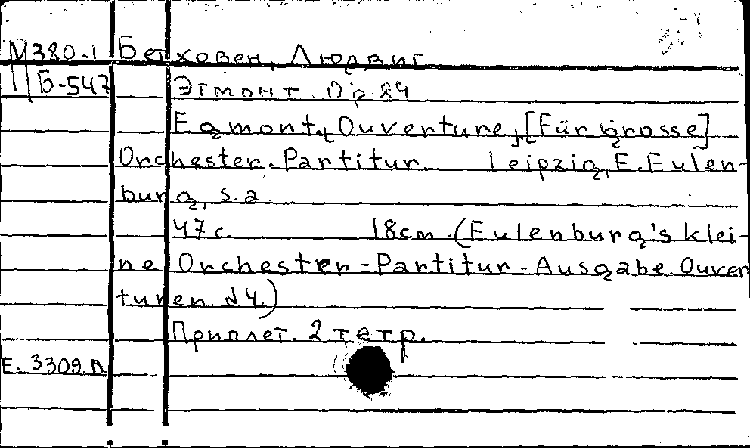 М380.1 Бетховен, Людвиг
Б-547 Эгмонт. Op 84
Egmont, Ouverture, [Für grosse]
Orchester. Partitur. Leipzig, E. Eulen-
burg, s.a.
47 c. 18 см. (Eulenburg's klei-
ne Orchester-Partitur-Ausgabe. Ouver
turen d 4.)
Приплет. 2 тетр.
Е. 3309.П